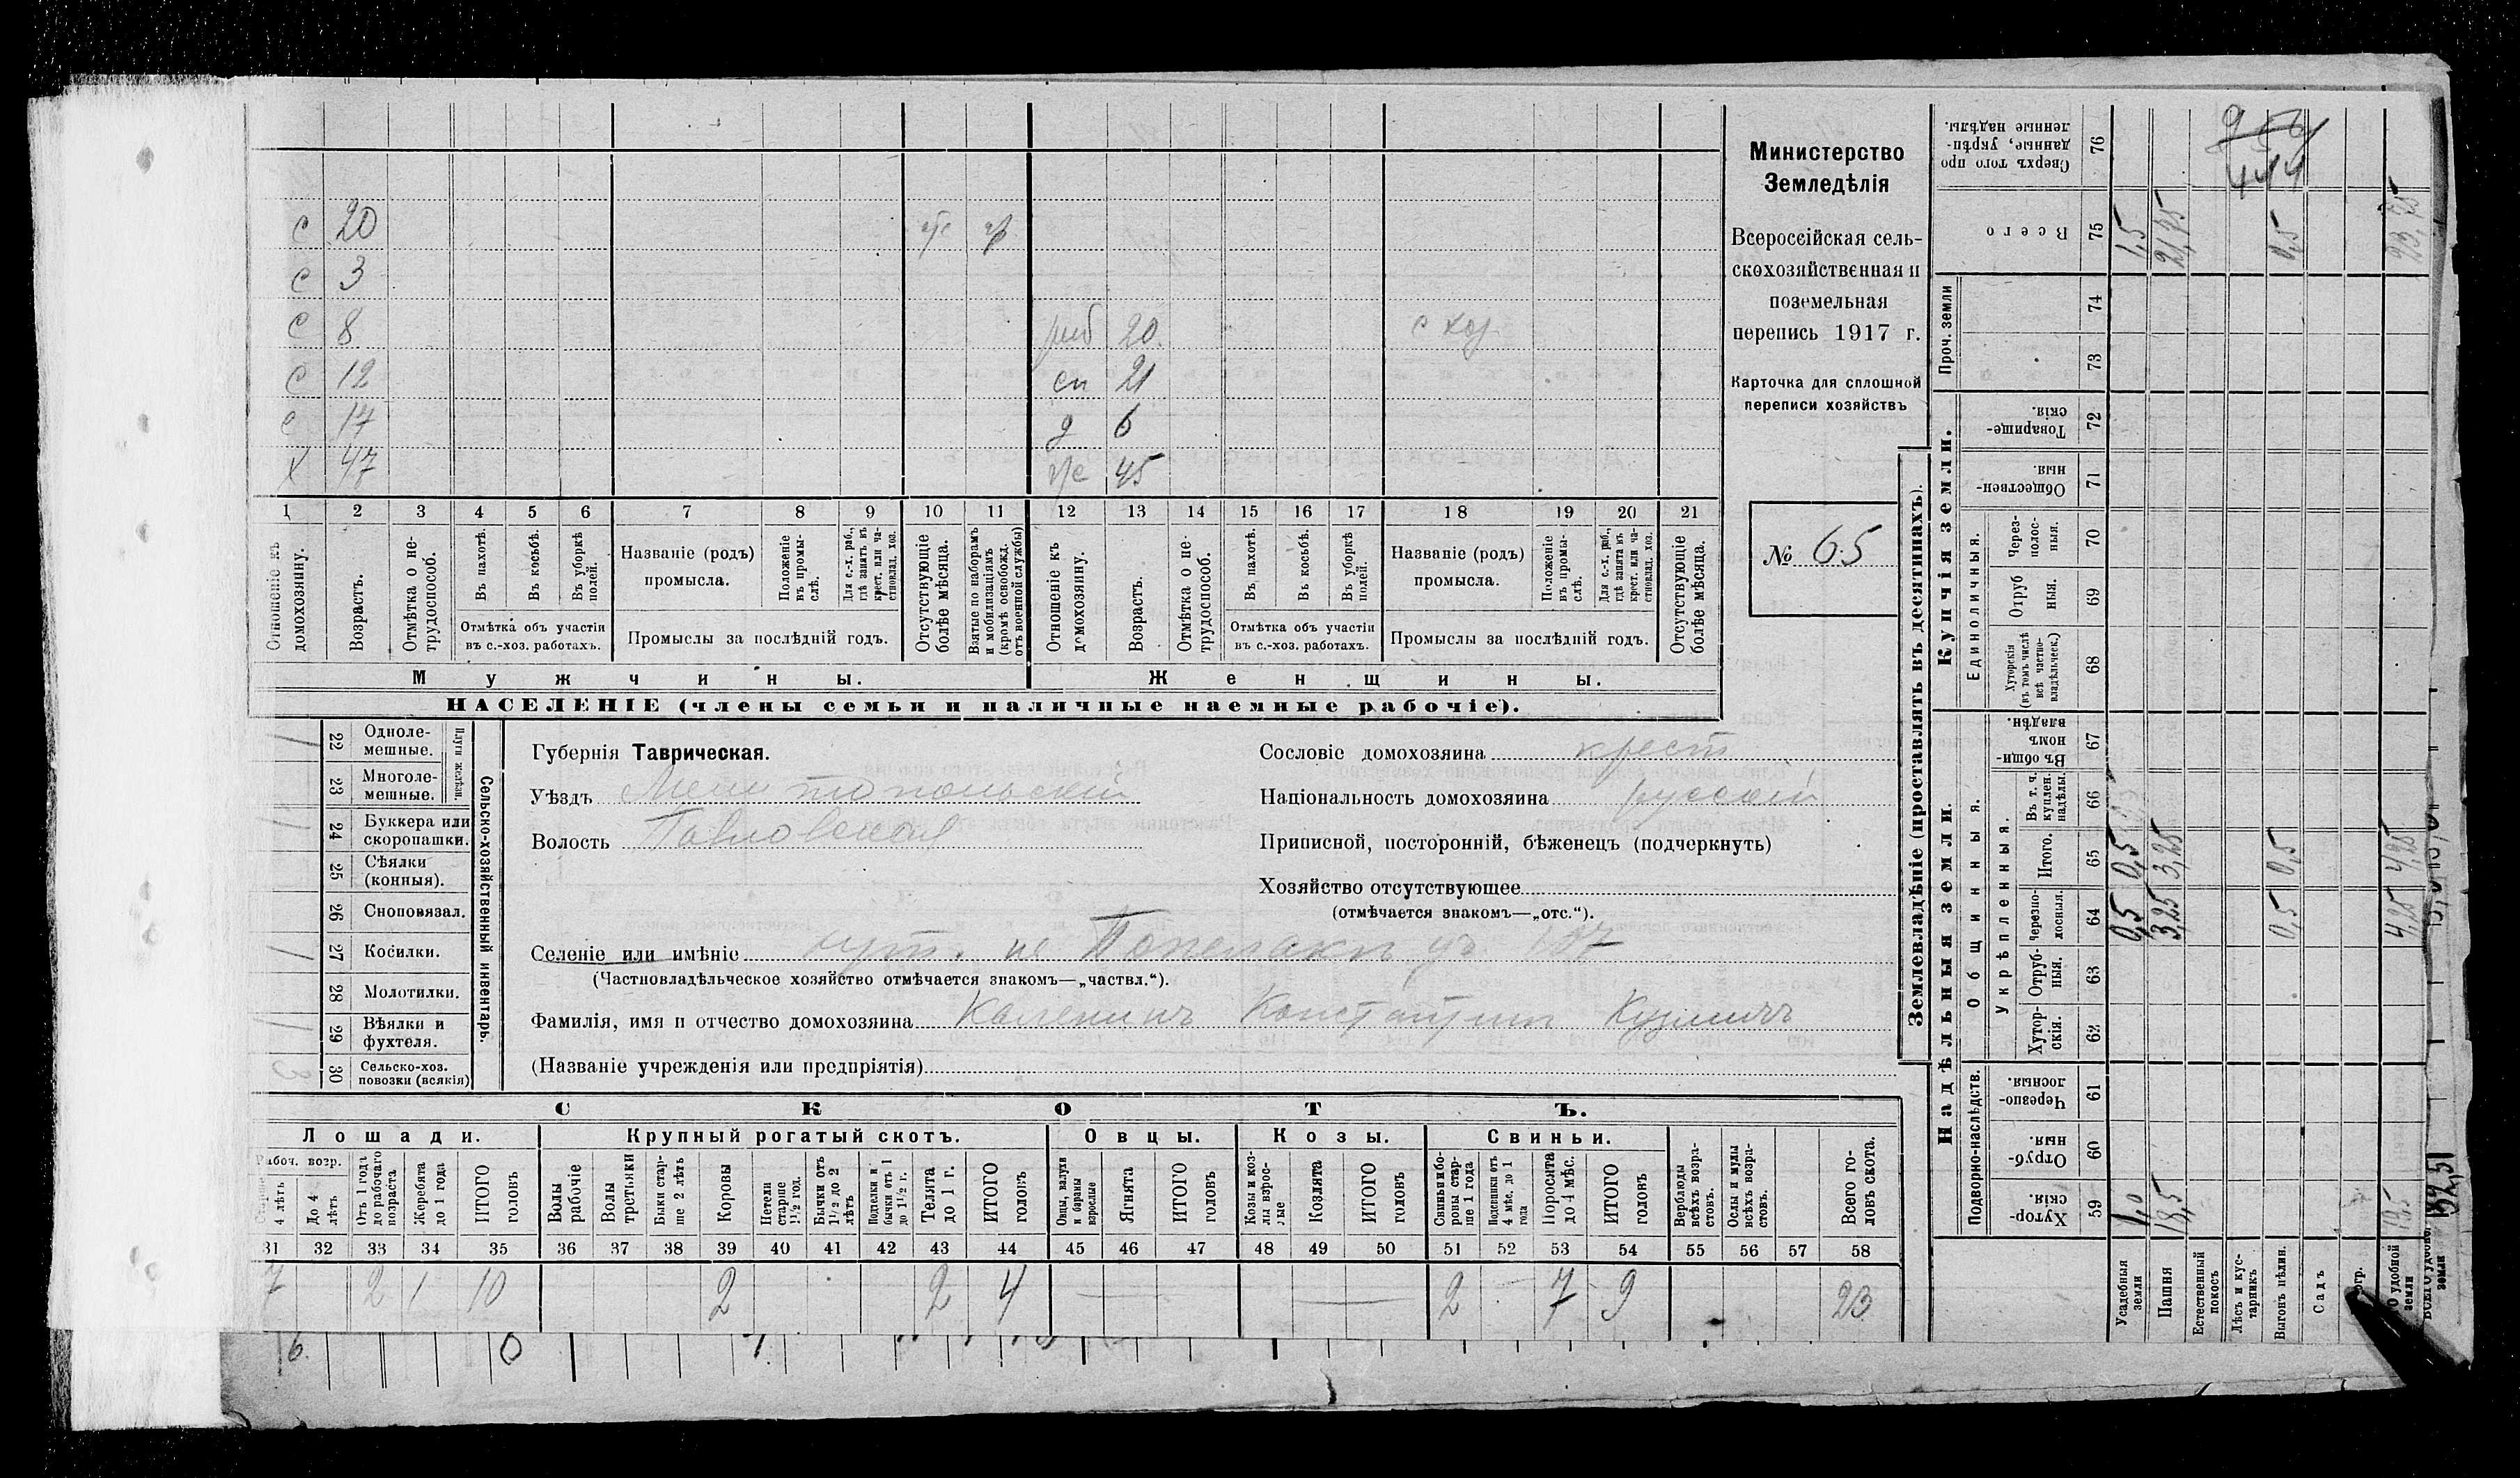 с 20
с 3
с 8 20. с хоз
с 12 сп 21
с 17 д 6
х 47 45
1 2 3 4 5 6 7 8 9 10 11 12 13 14 15 16 17 18 19 20 21
Отношеніе къ домохозяину.
Возрастъ.
Отмѣтка о не-
трудоспособ.
Въ пахотѣ.
Въ косьбѣ.
Въ уборкѣ
полей.
Отмѣтка объ участіи
въ с.-хоз. работахъ.
Названіе (родъ)
промысла.
Положеніе
въ промы-
слѣ.
Для с.-х. раб.,
гдѣ занятъ въ
крест. или ча-
стновлад. хоз.
Промыслы за послѣдній годъ.
Отсутствующіе
болѣе мѣсяца.
Взятые по наборамъ
и мобилизаціямъ
(кромѣ освобожд.
отъ военной службы)
Отношеніе къ
домохозяину.
Возрастъ.
Отмѣтка о не-
трудоспособ.
Въ пахотѣ.
Въ косьбѣ.
Въ уборкѣ
полей.
Отмѣтка объ участіи
въ с.-хоз. работахъ.
Названіе (родъ)
промысла.
Положеніе
въ промы-
слѣ.
Для с.-х. раб.,
гдѣ занята въ
крест. или ча-
стновлад. хоз.
Промыслы за послѣдній годъ.
Отсутствующіе
болѣе мѣсяца.
Мужчины.
Женщины.
НАСЕЛЕНІЕ (члены семьи и наличные наемные рабочіе).
Министерство
Земледѣлія
Всероссійская сель-
скохозяйственная и
поземельная
перепись 1917 г.
Карточка для сплошной
переписи хозяйствъ
№ 65
22 Однолe-
мешные.
23 Многоле-
мешные.
Плуги желѣзн.
24 Буккера или
скоропашки.
25 Сѣялки
(конныя).
26 Сноповязал.
27 Косилки.
28 Молотилки.
29 Вѣялки и
фухтеля.
30 Сельско-хоз.
повозки (всякія)
Сельско-хозяйственный инвентарь.
Губернія Таврическая.
Уѣздъ Мелитопольскій
Волость
Сословіе домохозяина крест
Національность домохозяина русскій
Приписной, посторонній, бѣженецъ (подчеркнуть)
Хозяйство отсутствующее
(отмѣчается знакомъ—„отс.“).
Селеніе или имѣніе
(Частновладѣльческое хозяйство отмѣчается знакомъ—„частвл.“).
Фамилія, имя и отчество домохозяина Константинъ Кузмичъ
(Названіе учрежденія или предпріятія)
СКОТЪ.
Лошади. Крупный рогатый скотъ. Овцы. Козы. Свиньи.
Рабоч. возр.
4 лѣтъ
До 4
лѣтъ
Отъ 1 года
до рабочаго
возраста
Жеребята
до 1 года
ИТОГО
головъ
Волы
рабочіе
Волы
третьяки
Быки стар-
ше 2 лѣтъ
Коровы
Нетели
старше
1½ год.
Бычки отъ
1½ до 2
лѣтъ
Подтелки и
бычки отъ 1
до 1½ г.
Телята
до 1 г.
ИТОГО
головъ
Овцы, валухи
и бараны
взрослые
Ягнята
ИТОГО
головъ
Козы и коз-
лы взрос-
лые
Козлята
ИТОГО
головъ
Свиньи и бо-
ровы стар-
ше 1 года
Подсвинки отъ
4 мѣс. до 1
года
Поросята
до 4 мѣс.
ИТОГО
головъ
Верблюды
всѣхъ возра-
стовъ.
Ослы и мулы
всѣхъ возра-
стовъ.
Всего го-
ловъ скота.
31 32 33 34 35 36 37 38 39 40 41 42 43 44 45 46 47 48 49 50 51 52 53 54 55 56 57 58
7 2 1 10 2 2 4 — — 2 7 9 23
Землевладѣніе (проставлять въ десятинахъ).
Купчія земли.
Надѣльныя земли.
Сверхъ того про
данные, укрѣп-
ленные надѣлы.
76
Всего
75 1,5 21,75 0,5 23,75
Проч. земли
74
73
Товарище-
скія.
72
Обществен-
ныя.
71
Единоличныя.
Через-
полос-
ныя.
70
Отруб
ныя.
69
Хуторскія
(въ томъ числѣ
всѣ частно-
владѣльческ.)
68
Общинныя.
Въ общи-
номъ
владѣн.
67
Укрѣпленныя.
Въ т. ч.
куплен.
надѣлы.
66
Итого.
65 0,5 3,25 0,5 4,25
Черезпо-
лосныя.
64 0,5 3,25 0,5 4,25
Отруб-
ныя.
63
Хутор-
скія.
62
Подворно-наслѣдств.
Черезпо-
лосныя.
61
Отруб-
ныя.
60
Хутор-
скія.
59 1,0 18,5 19,5
Усадебныя
земли
Пашня
Естественный
покосъ
Лѣсъ и кус-
тарникъ
Выгонъ цѣлин.
Садъ
удобной
земли
земли
444